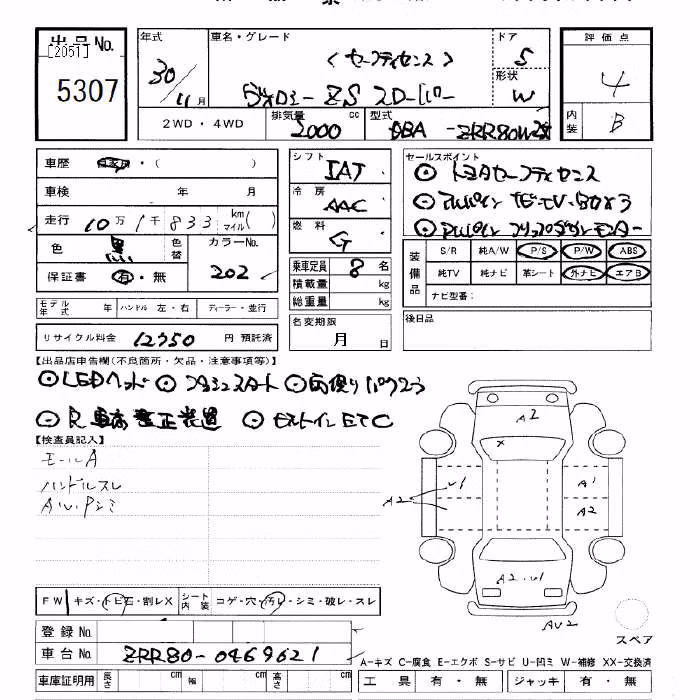 出品No.
[2051]
5307
年式
30/11月
車名・グレード
(セーフティセンス)
ヴォクシー ZS
ドア
5
形状
W
2WD・4WD
排気量
2000 cc
型式
DBA-ZRR80W
評価点
4
内装
B
車歴 自家用・( )
車検 年 月
走行 10万1千833 km マイル( )
色 黒 色替
カラーNo.
202
保証書 有・無
シフト
IAT
冷房
AAC
燃料
G
乗車定員 8名
積載量 kg
総重量 kg
セールスポイント
トヨタセーフティセンス
アルパイン
アルパイン フリップダウンモニター
装備品
S/R 純A/W P/S P/W ABS
純TV 純ナビ 革シート 外ナビ エアB
ナビ型番:
モデル年式 年 ハンドル 左・右 ディーラー・並行
リサイクル料金 12750 円 預託済
名変期限
月 日
後日品
【出品店申告欄(不良箇所・欠品・注意事項等)】
LEDヘッド プッシュスタート
ビルトインETC
【検査員記入】
モールA
ハンドルスレ
A2
A2
U1
A1
A2
A2・U1
AU2
スペア
FW キズ・トビ石・割レX シート内装 コゲ・穴・汚レ・シミ・破レ・スレ
登録No.
車台No. ZRR80-0469621
車庫証明用 長さ cm 幅 cm 高さ cm
A-キズ C-腐食 E-エクボ S-サビ U-凹ミ W-補修 XX-交換済
工具 有・無 ジャッキ 有・無